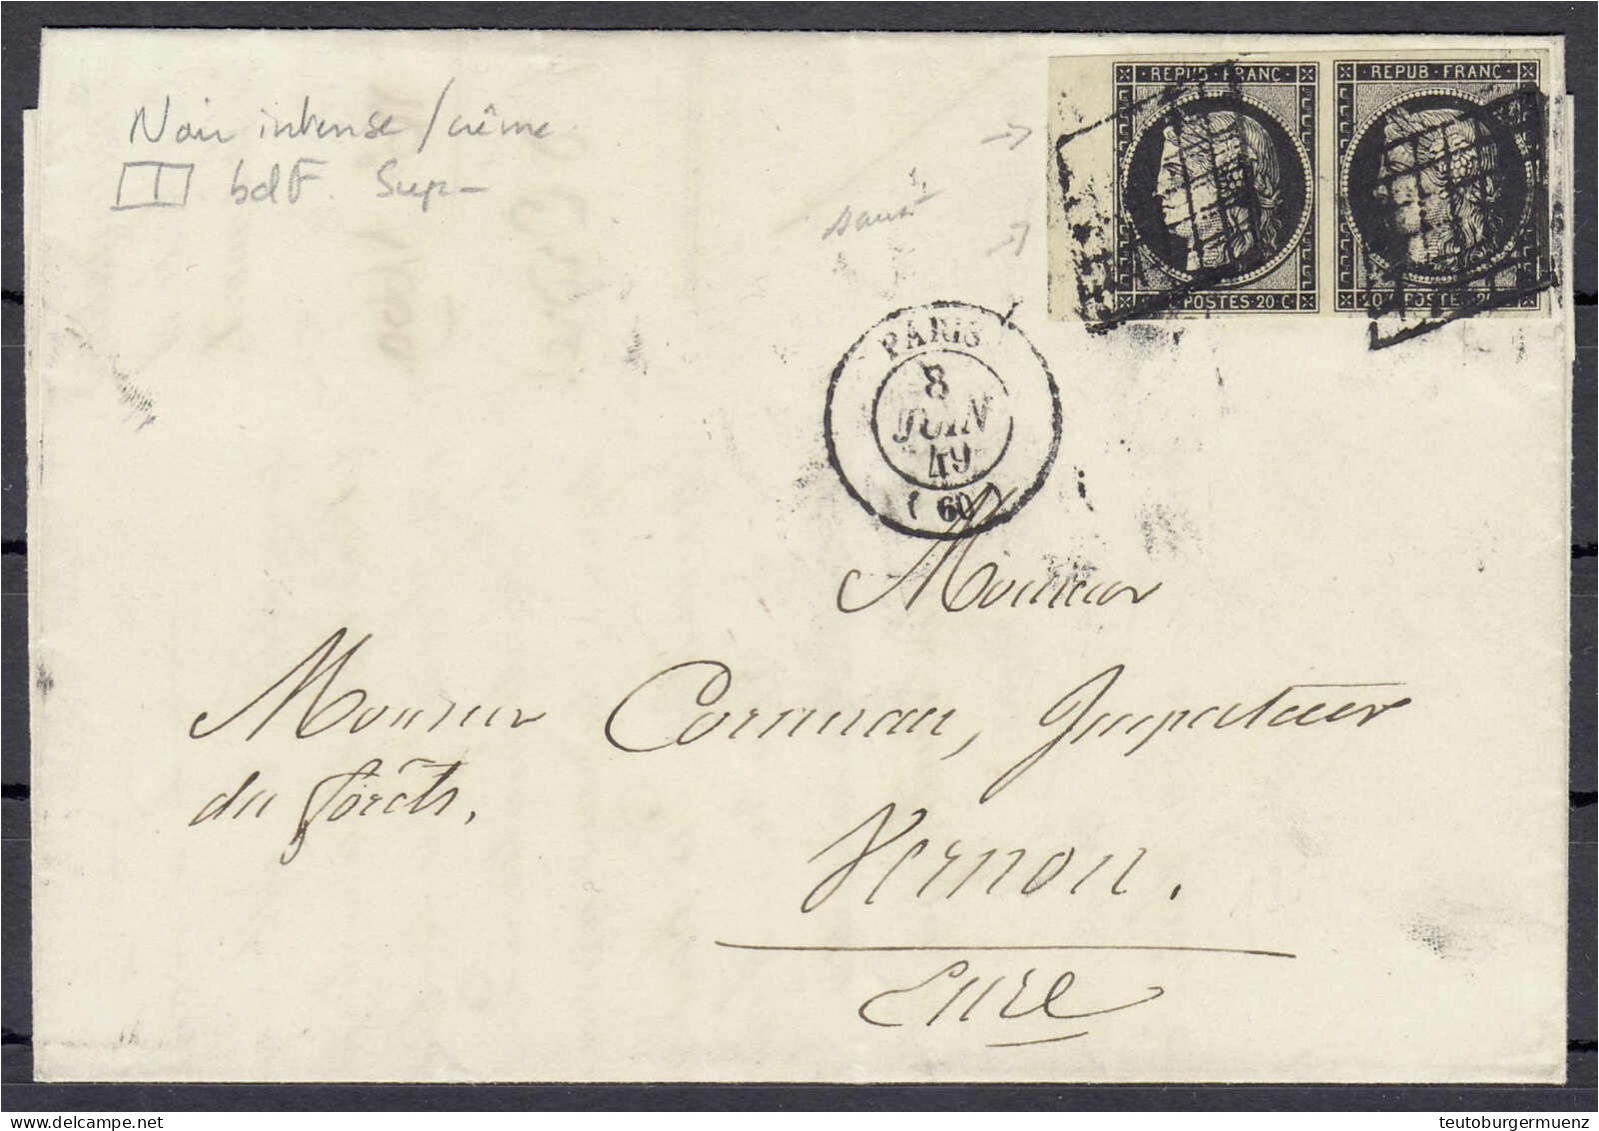 Noir intense / crème
bdF. Sup–
REPUB · FRANC
REPUB · FRANC
POSTES · 20 C
20 C POSTES · 20
PARIS
8
JUIN
49
(60)
Monsieur
Monsieur Cormeau, Inspecteur
des forêts,
Vernon.
Eure
delcampe.net
teutoburgermuenz